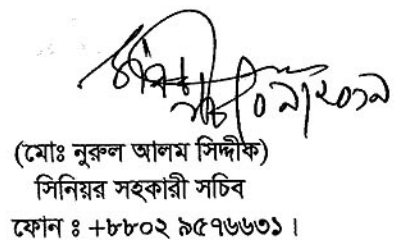 (মোঃ নুরুল আলম সিদ্দীক)
সিনিয়র সহকারী সচিব
ফোন ঃ +৮৮০২ ৯৫৭৬৬৩১।